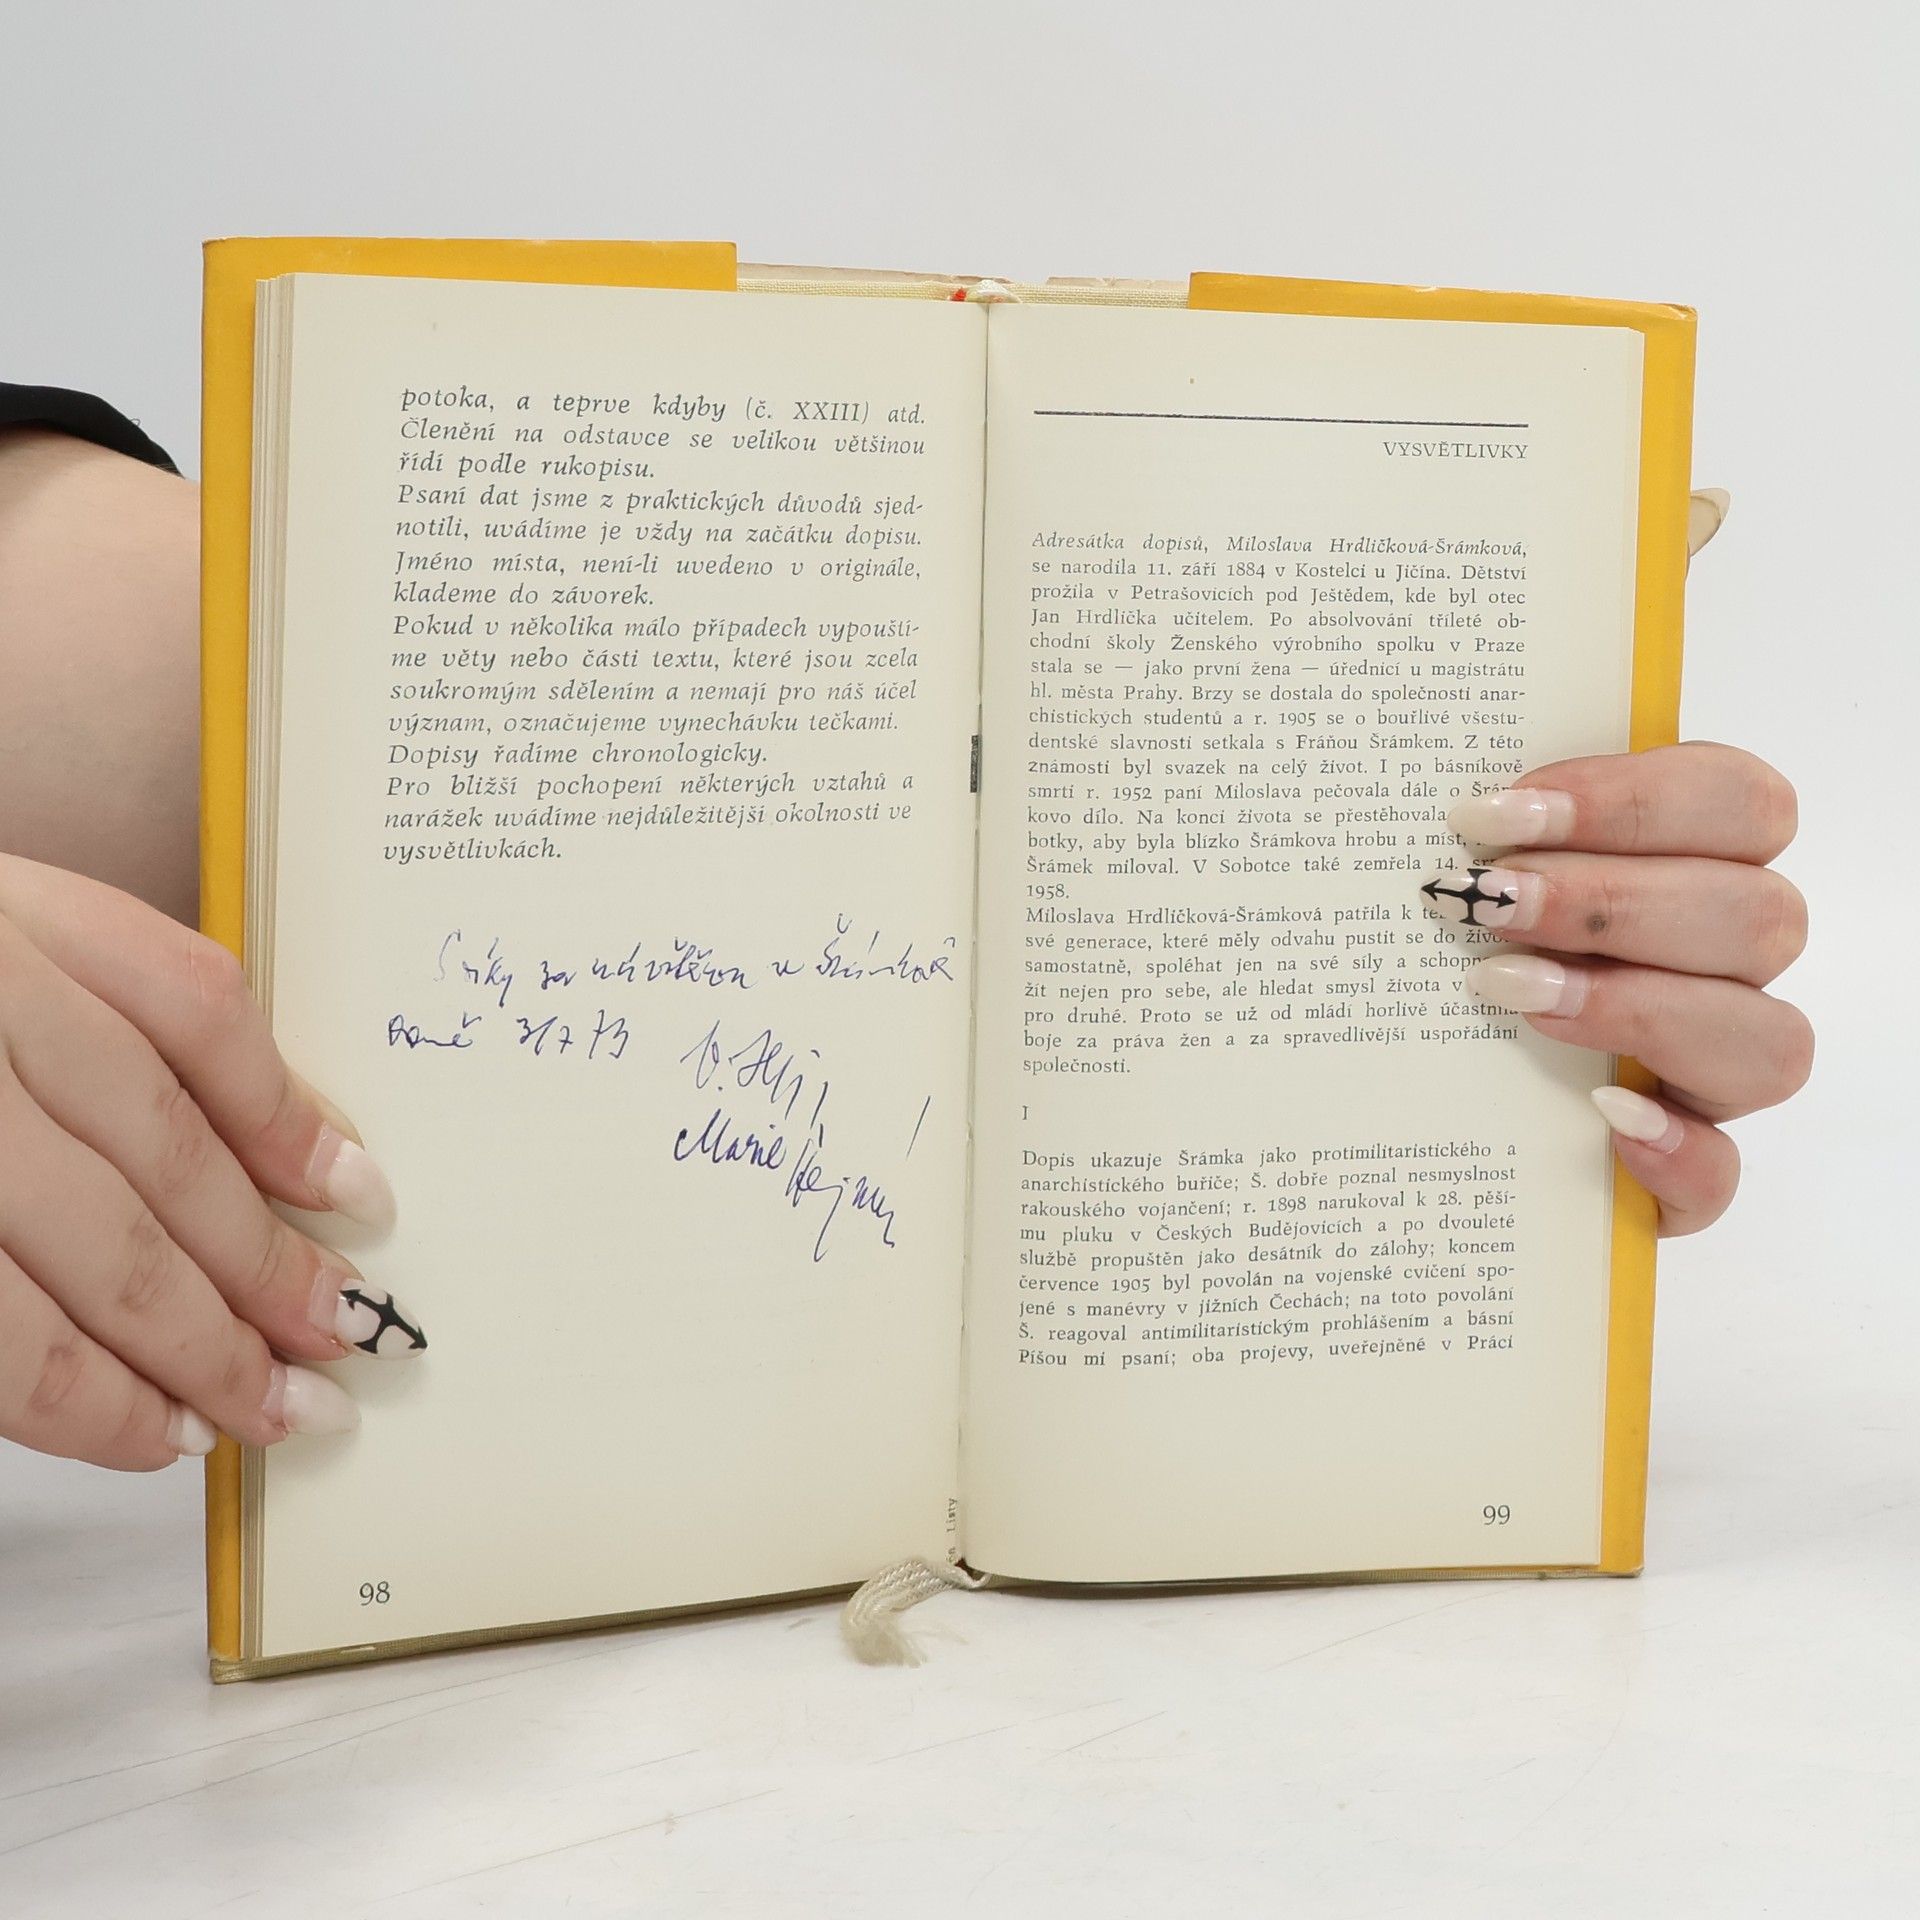 potoka, a teprve kdyby (č. XXIII) atd.
Členění na odstavce se velikou většinou
řídí podle rukopisu.
Psaní dat jsme z praktických důvodů sjed-
notili, uvádíme je vždy na začátku dopisu.
Jméno místa, není-li uvedeno v originále,
klademe do závorek.
Pokud v několika málo případech vypouští-
me věty nebo části textu, které jsou zcela
soukromým sdělením a nemají pro náš účel
význam, označujeme vynechávku tečkami.
Dopisy řadíme chronologicky.
Pro bližší pochopení některých vztahů a
narážek uvádíme nejdůležitější okolnosti ve
vysvětlivkách.
za v
domě 3/7 73
Marie
98
Listy
VYSVĚTLIVKY
Adresátka dopisů, Miloslava Hrdličková-Šrámková,
se narodila 11. září 1884 v Kostelci u Jičína. Dětství
prožila v Petrašovicích pod Ještědem, kde byl otec
Jan Hrdlička učitelem. Po absolvování tříleté ob-
chodní školy Ženského výrobního spolku v Praze
stala se — jako první žena — úřednicí u magistrátu
hl. města Prahy. Brzy se dostala do společnosti anar-
chistických studentů a r. 1905 se o bouřlivé všestu-
dentské slavnosti setkala s Fráňou Šrámkem. Z této
známosti byl svazek na celý život. I po básníkově
smrti r. 1952 paní Miloslava pečovala dále o
kovo dílo. Na konci života se přestěhovala
botky, aby byla blízko Šrámkova hrobu a míst,
Šrámek miloval. V Sobotce také zemřela 14.
1958.
Miloslava Hrdličková-Šrámková patřila k
své generace, které měly odvahu pustit se do
samostatně, spoléhat jen na své síly a
žít nejen pro sebe, ale hledat smysl života v
pro druhé. Proto se už od mládí horlivě účastnila
boje za práva žen a za spravedlivější uspořádání
společnosti.
I
Dopis ukazuje Šrámka jako protimilitaristického a
anarchistického buřiče; Š. dobře poznal nesmyslnost
rakouského vojančení; r. 1898 narukoval k 28. pěší-
mu pluku v Českých Budějovicích a po dvouleté
službě propuštěn jako desátník do zálohy; koncem
července 1905 byl povolán na vojenské cvičení spo-
jené s manévry v jižních Čechách; na toto povolání
Š. reagoval antimilitaristickým prohlášením a básní
Píšou mi psaní; oba projevy, uveřejněné v Práci
99